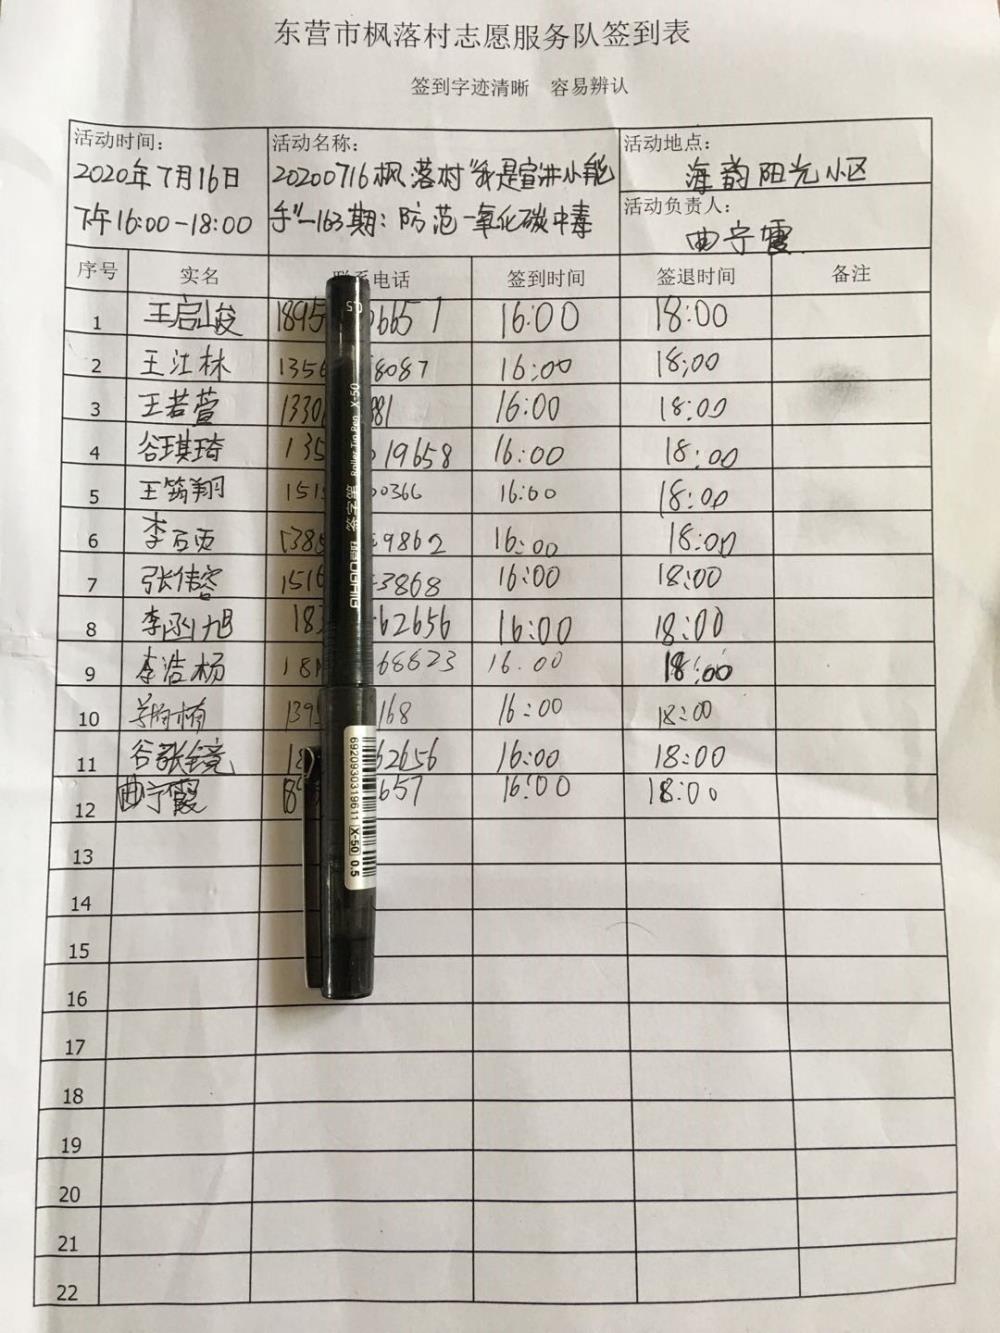 东营市枫落村志愿服务队签到表
签到字迹清晰 容易辨认
活动时间：
2020年7月16日
下午16:00-18:00
活动名称：
20200716枫落村“我是宣讲小能
手”—163期：防范一氧化碳中毒
活动地点：
海韵阳光小区
活动负责人：
曲宁霞
序号 实名 电话 签到时间 签退时间 备注
1 王启峻 1895 6651 16:00 18:00
2 王江林 1356 8087 16:00 18:00
3 王若萱 1330 881 16:00 18:00
4 谷琪琦 135 19658 16:00 18:00
5 王筠翔 151 00366 16:00 18:00
6 李 9862 16:00 18:00
7 张伟容 1516 3868 16:00 18:00
8 李函旭 183 62656 16:00 18:00
9 李浩杨 18 68823 16:00 18:00
10 139 168 16:00 18:00
11 谷张镜 62656 16:00 18:00
12 曲宁霞 657 16:00 18:00
13
14
15
16
17
18
19
20
21
22
0.5
签字笔
6920930319611 X-50 0.5